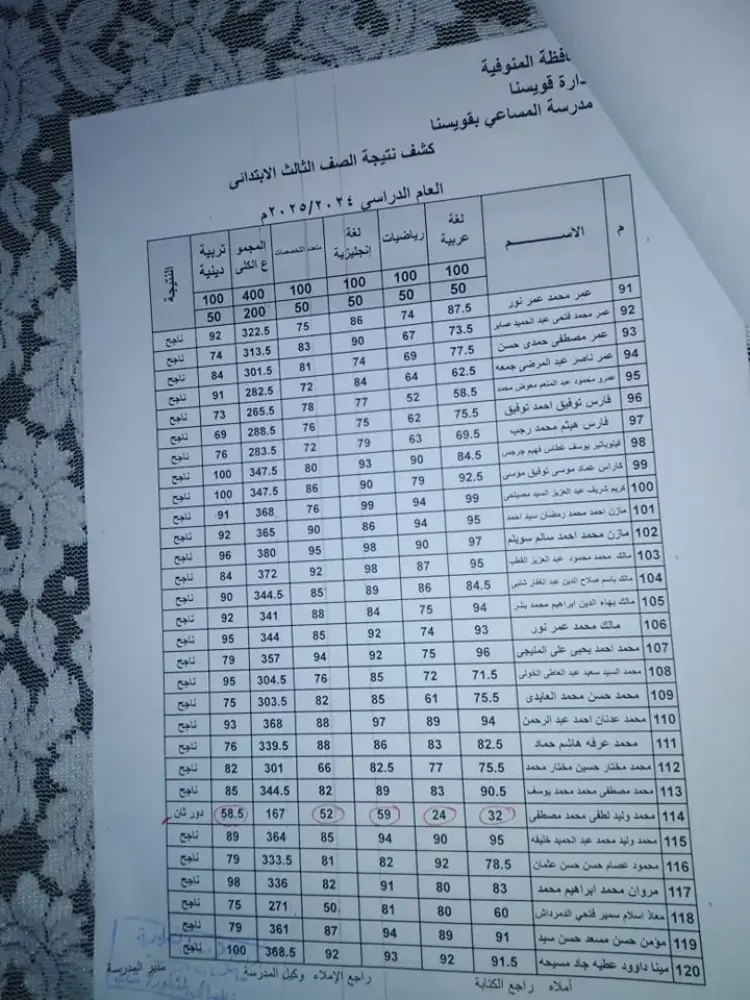 افظة المنوفية
دارة قويسنا
مدرسة المساعي بقويسنا
كشف نتيجة الصف الثالث الابتدائى
العام الدراسي ٢٠٢٥/٢٠٢٤م
م الاســـــــم لغة عربية رياضيات لغة إنجليزية متعدد التخصصات المجموع الكلى تربية دينية النتيجة
100 100 100 100 400 100
50 50 50 50 200 50
91 عمر محمد عمر نور 87.5 74 86 75 322.5 92 ناجح
92 عمر محمد فتحى عبد الحميد صابر 73.5 67 90 83 313.5 74 ناجح
93 عمر مصطفى حمدى حسن 77.5 69 74 81 301.5 84 ناجح
94 عمر ناصر عبد المرضى جمعه 62.5 64 84 72 282.5 91 ناجح
95 عمرو محمود عبد المنعم معوض محمد 58.5 52 77 78 265.5 73 ناجح
96 فارس توفيق احمد توفيق 75.5 62 75 76 288.5 69 ناجح
97 فارس هيثم محمد رجب 69.5 63 79 72 283.5 76 ناجح
98 فيلوباتير يوسف غطاس فهيم جرجس 84.5 90 93 80 347.5 100 ناجح
99 كاراس عماد موسى توفيق موسى 92.5 79 90 86 347.5 100 ناجح
100 كريم شريف عبد العزيز السيد مصيلحى 99 94 99 76 368 91 ناجح
101 مازن احمد محمد رمضان سيد احمد 95 94 86 90 365 92 ناجح
102 مازن محمد احمد سالم سويلم 97 90 98 95 380 96 ناجح
103 مالك محمد محمود عبد العزيز القطب 95 87 98 92 372 84 ناجح
104 مالك باسم صلاح الدين عبد الغفار شلبى 84.5 86 89 85 344.5 90 ناجح
105 مالك بهاء الدين ابراهيم محمد بشر 94 75 84 88 341 92 ناجح
106 مالك محمد عمر نور 93 74 92 85 344 95 ناجح
107 محمد احمد يحيى على المليجى 96 75 92 94 357 79 ناجح
108 محمد السيد سعيد عبد العاطى الخولى 71.5 72 85 76 304.5 95 ناجح
109 محمد حسن محمد العايدى 75.5 61 85 82 303.5 75 ناجح
110 محمد عدنان احمد عبد الرحمن 94 89 97 88 368 93 ناجح
111 محمد عرفه هاشم حماد 82.5 83 86 88 339.5 76 ناجح
112 محمد مختار حسين مختار محمد 75.5 77 82.5 66 301 82 ناجح
113 محمد مصطفى محمد محمد يوسف 90.5 83 89 82 344.5 85 ناجح
114 محمد وليد لطفى محمد مصطفى 32 24 59 52 167 58.5 دور ثان
115 محمد وليد محمد عبد الحميد خليفه 95 90 94 85 364 89 ناجح
116 محمود عصام حسن حسن عثمان 78.5 92 82 81 333.5 79 ناجح
117 مروان محمد ابراهيم محمد 83 80 91 82 336 98 ناجح
118 معاذ اسلام سمير فتحي الدمرداش 60 80 81 50 271 75 ناجح
119 مؤمن حسن مسعد حسن سيد 91 89 94 87 361 79 ناجح
120 مينا داوود عطيه جاد مسيحه 91.5 92 93 92 368.5 100 ناجح
أملاه راجع الكتابة راجع الإملاء وكيل المدرسة مدير المدرسة